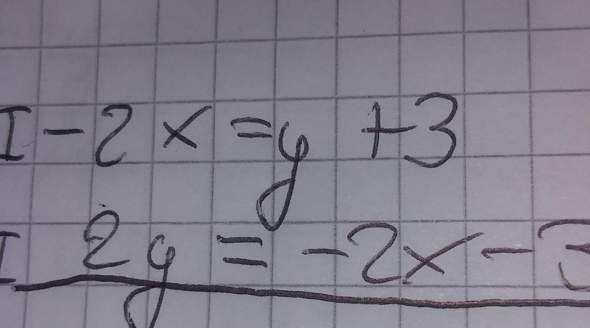 I -2x = y +3
I 2y = -2x - 3